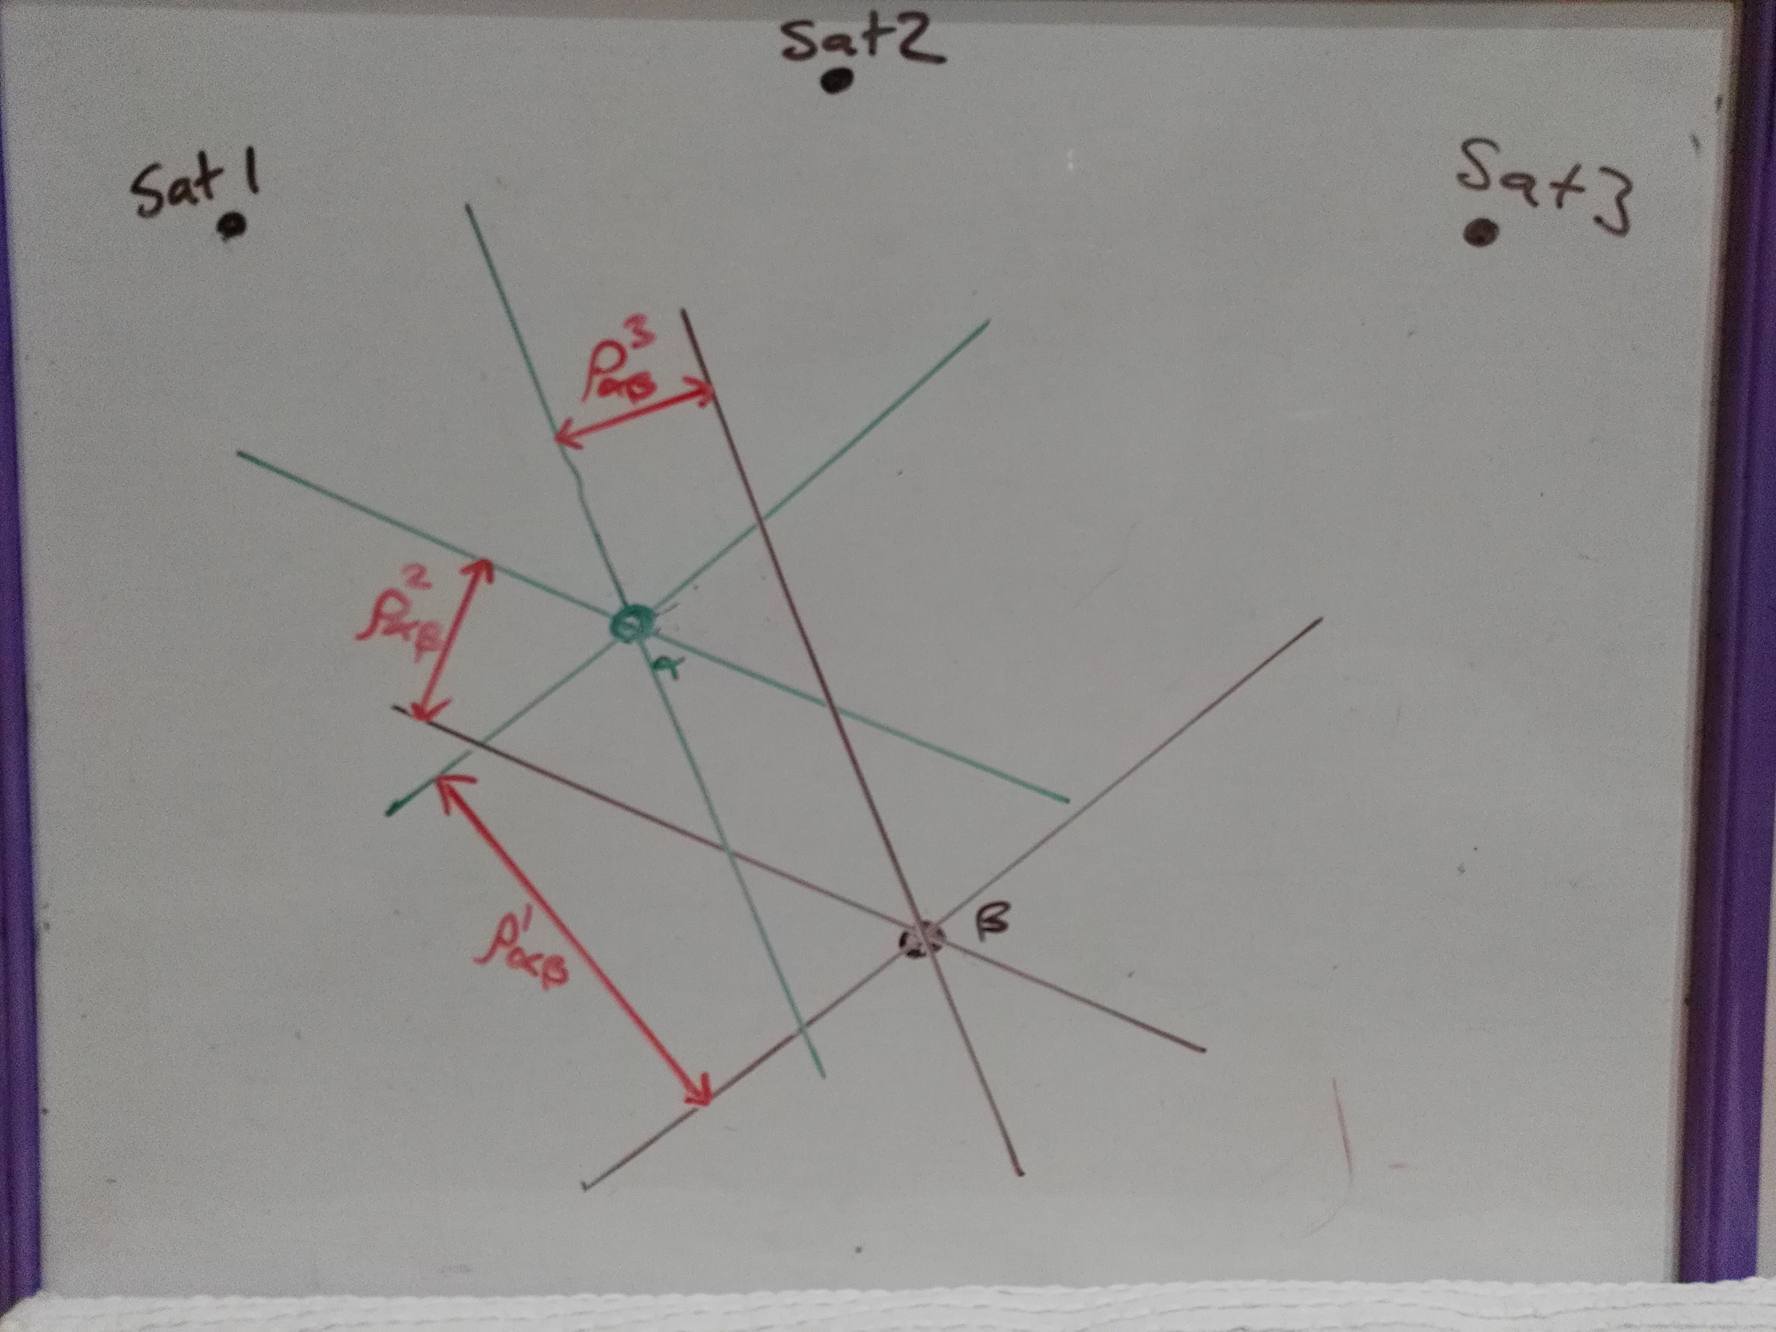 Sat2
Sat1
Sat3
ρ³αβ
ρ²αβ
α
β
ρ¹αβ